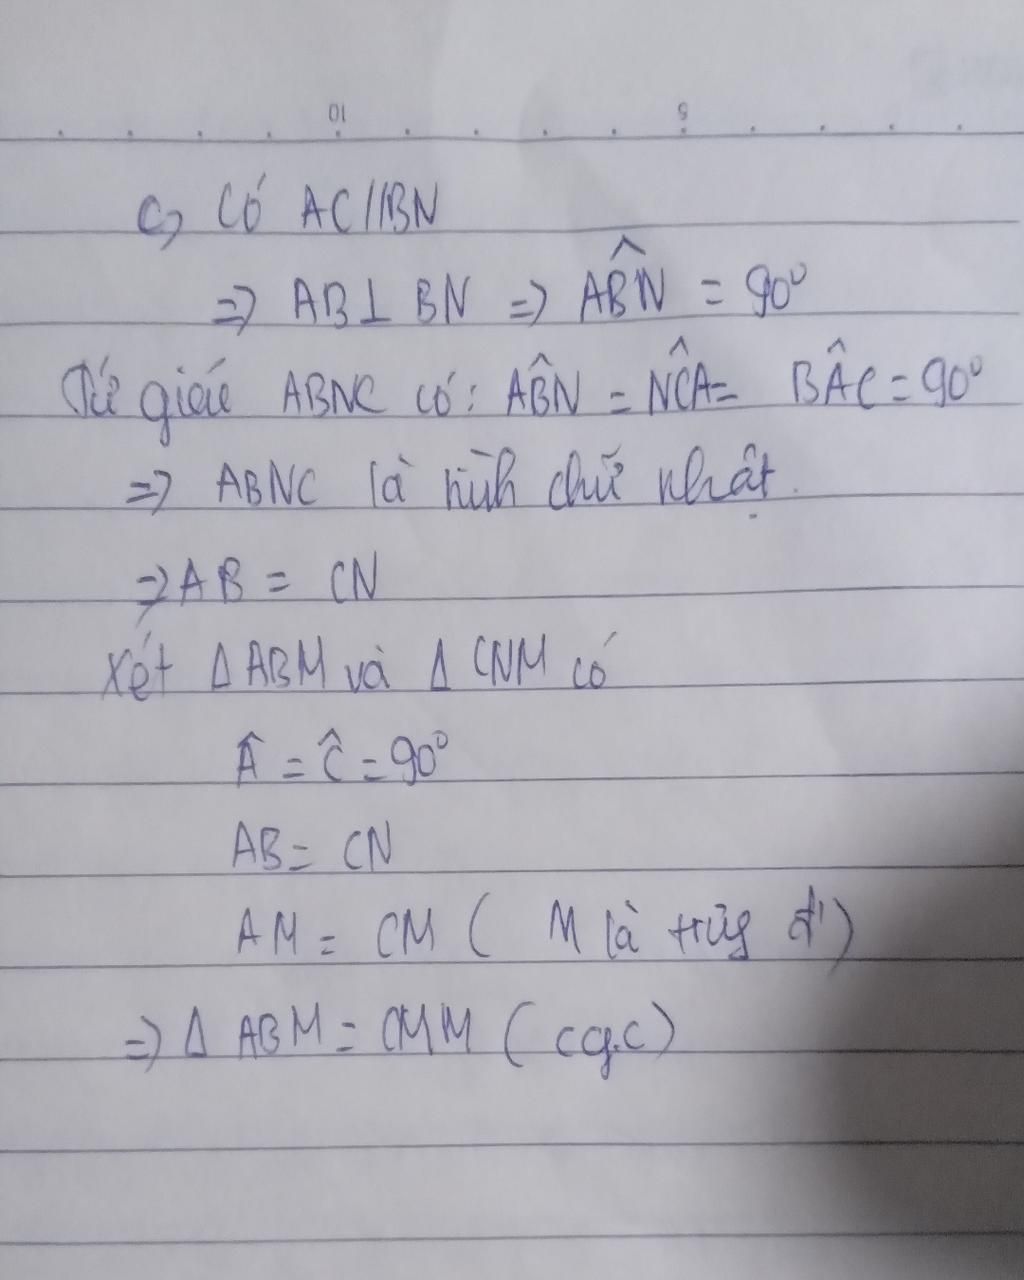 10 5
c, Có AC//BN
=> AB⊥ BN => AB̂N = 90⁰
Tứ giác ABNC có: AB̂N = NĈA= BÂC = 90⁰
=> ABNC là hình chữ nhật.
=> AB = CN
Xét Δ ABM và Δ CNM có
Â = Ĉ = 90⁰
AB = CN
AM = CM ( M là trũg đ')
=> Δ ABM = CMM ( cg.c)